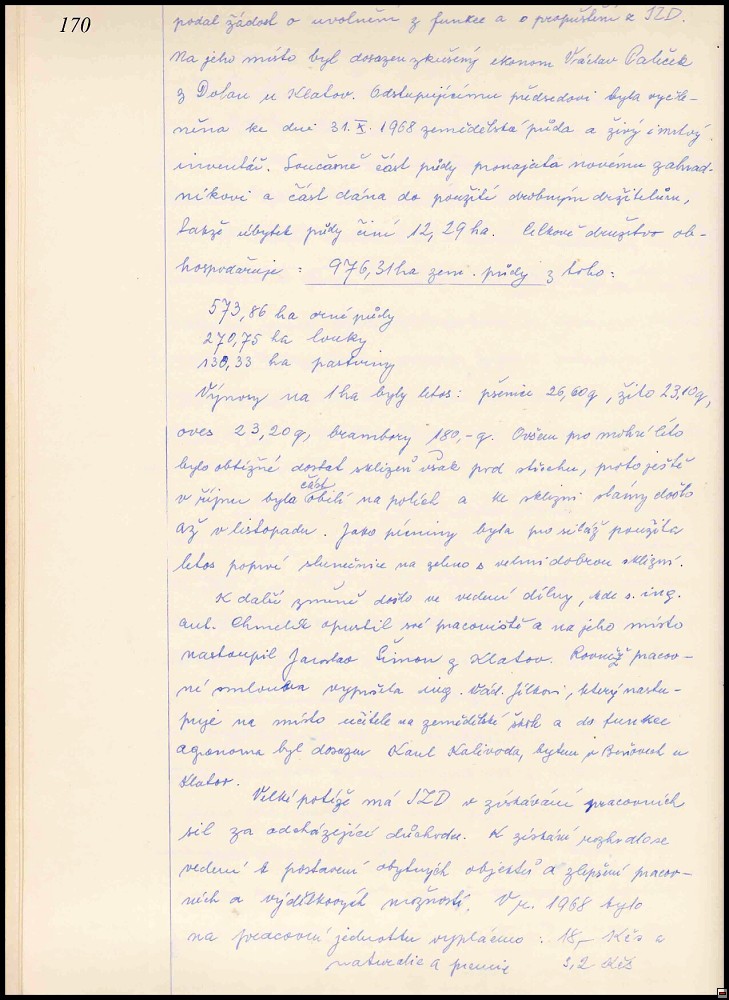 170
podal žádost o uvolnění z funkce a o propuštění z JZD.
Na jeho místo byl dosazen zkušený ekonom Václav Paliček
z Dolan u Klatov. Odstupujícímu předsedovi byla vyčle-
něna ke dni 31.X. 1968 zemědělská půda a živý i mrtvý
inventář. Současně část půdy pronajata novému zahrad-
níkovi a část dána do použití drobným držitelům,
takže úbytek půdy činí 12,29 ha. Celkově družstvo ob-
hospodařuje : 976,31 ha zem. půdy z toho:
573,86 ha orné půdy
270,75 ha louky
130,33 ha pastviny
Výnosy na 1 ha byly letos: pšenice 26,60 q, žito 23,10 q,
oves 23,20 q, brambory 180,- q. Ovšem pro mokré léto
bylo obtížné dostat sklizeň však pod střechu, proto ještě
v říjnu byla část obilí na polích a ke sklizni slámy došlo
až v listopadu. Jako pícniny byla pro siláž použita
letos poprvé slunečnice na zeleno s velmi dobrou sklizní.
K další změně došlo ve vedení dílny, kde s. ing.
Ant. Chmelík opustil své pracoviště a na jeho místo
nastoupil Jaroslav Šimon z Klatov. Rovněž pracov-
ní smlouva vypršela ing. Vlád. Jílkovi, který nastu-
puje na místo učitele na zemědělské škole a do funkce
agronoma byl dosazen Karel Kalivoda, bytem v Beňovech u
Klatov.
Velké potíže má JZD v získávání pracovních
sil za odcházející důchodce. K získání rozhodlo se
vedení k postavení obytných objektů a zlepšení pracov-
ních a výdělkových možností. V r. 1968 bylo
na pracovní jednotku vypláceno : 18,- Kčs a
naturalie a premie 3,2 Kčs